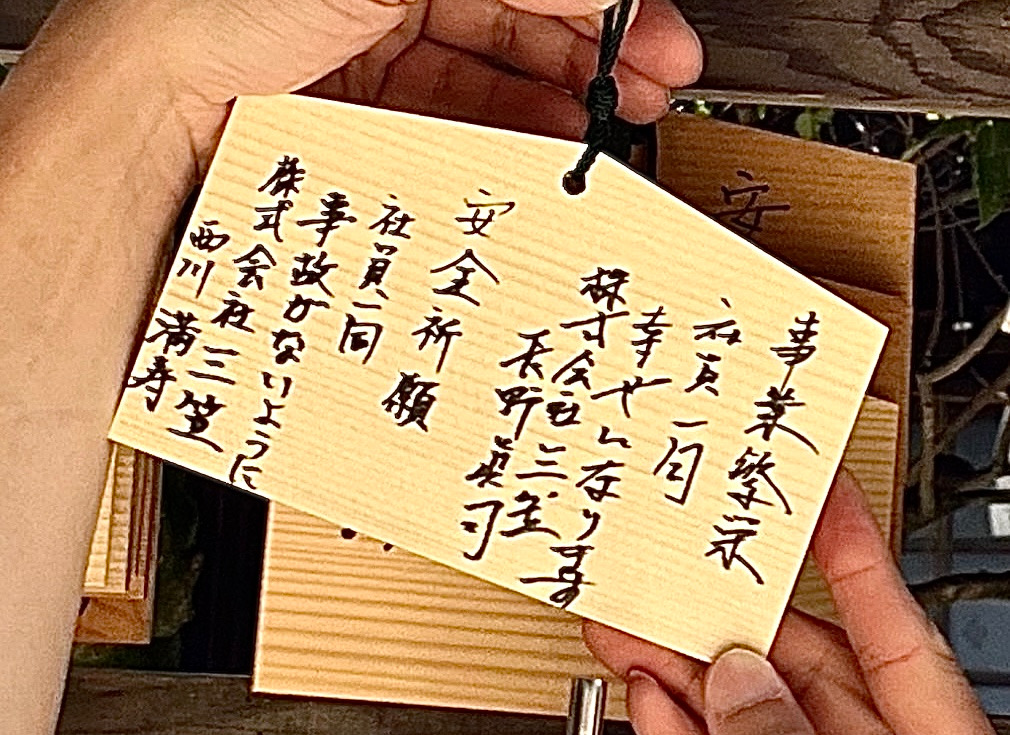 事業繁栄
社員一同
幸せになります
株式会社三笠
長野眞司
安全祈願
社員一同
事故がないように
株式会社三笠
西川 満寿
安